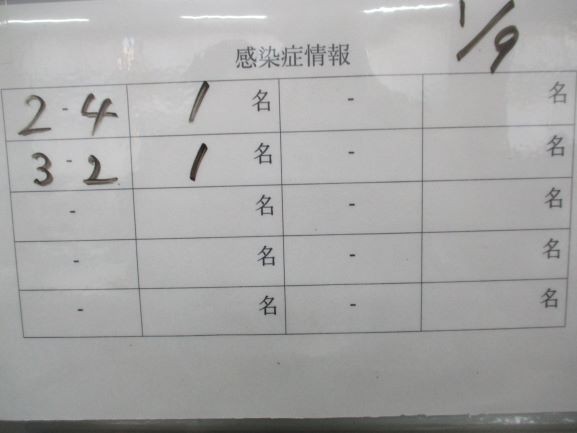 1/9
感染症情報
2-4 1 名 - 名
3-2 1 名 - 名
- 名 - 名
- 名 - 名
- 名 - 名